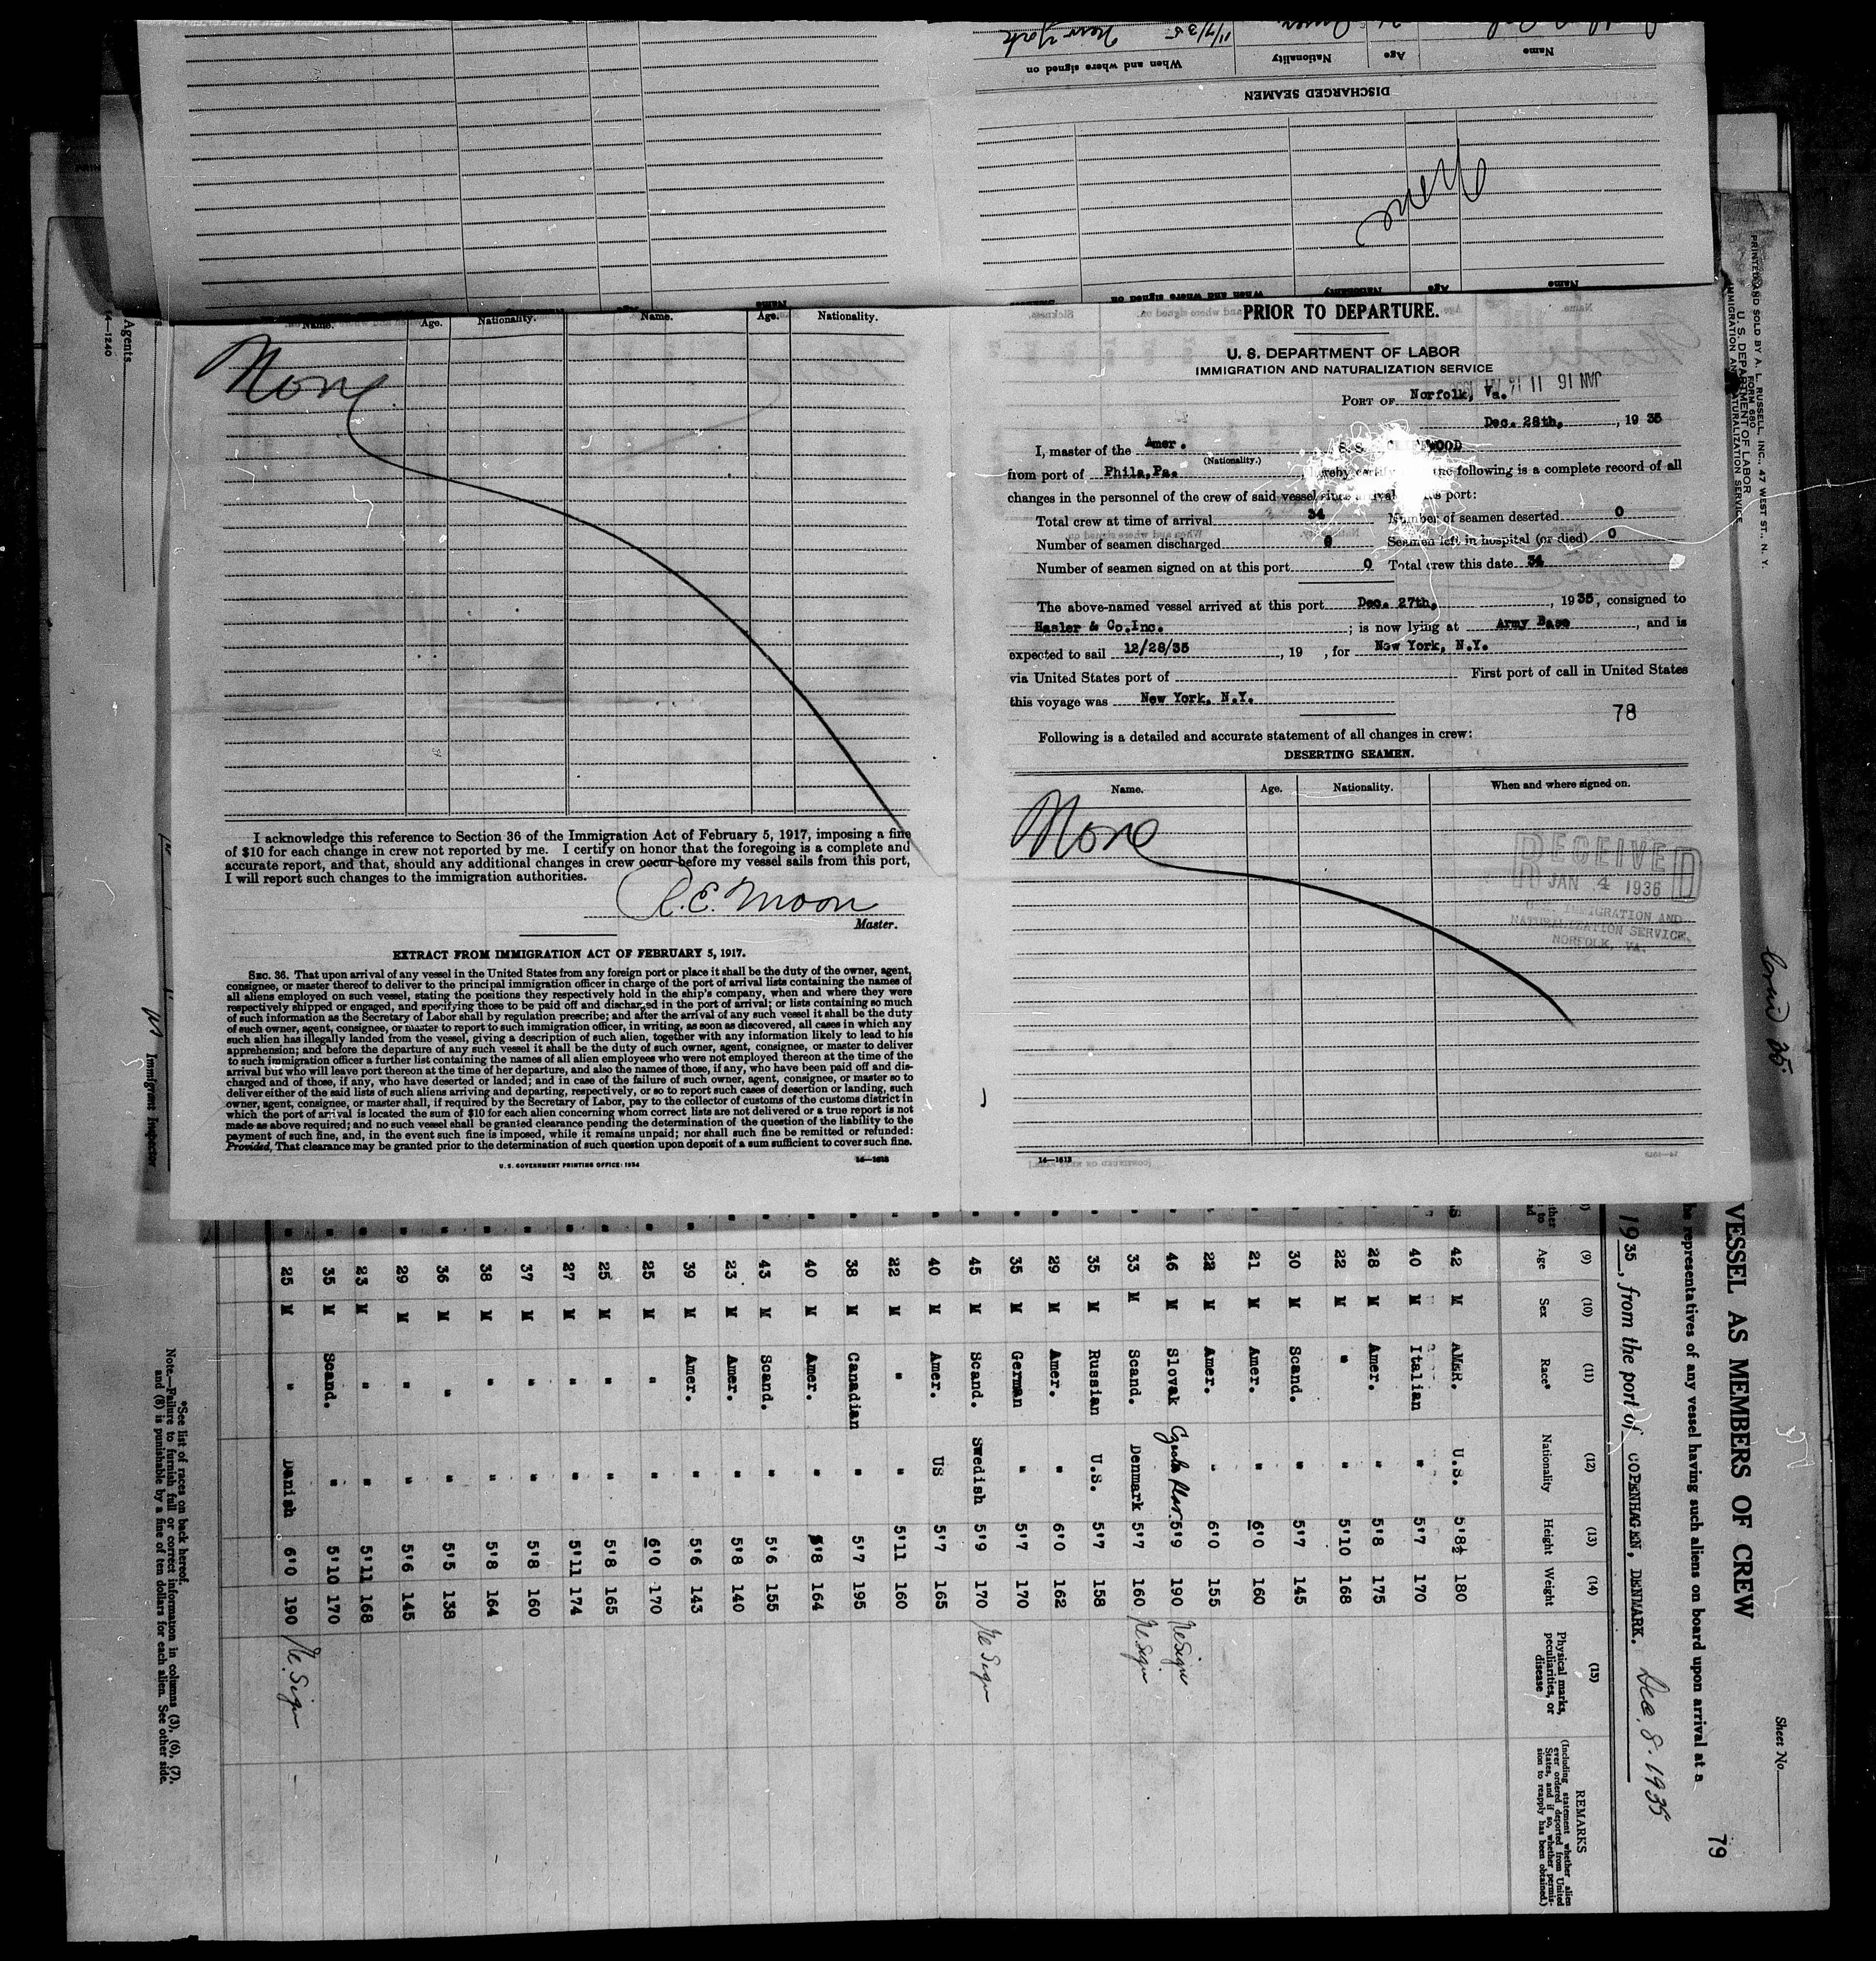 New York
11/7/35
Name
Age
Nationality
When and where signed on
DISCHARGED SEAMEN
None
Name
Age
Nationality
When and where signed on
Name.
Age.
Nationality.
Name.
Age.
Nationality.
None
I acknowledge this reference to Section 36 of the Immigration Act of February 5, 1917, imposing a fine
of $10 for each change in crew not reported by me. I certify on honor that the foregoing is a complete and
accurate report, and that, should any additional changes in crew occur before my vessel sails from this port,
I will report such changes to the immigration authorities.
R.E. Moon
Master.
EXTRACT FROM IMMIGRATION ACT OF FEBRUARY 5, 1917.
SEC. 36. That upon arrival of any vessel in the United States from any foreign port or place it shall be the duty of the owner, agent,
consignee, or master thereof to deliver to the principal immigration officer in charge of the port of arrival lists containing the names of
all aliens employed on such vessel, stating the positions they respectively hold in the ship's company, when and where they were
respectively shipped or engaged, and specifying those to be paid off and discharged in the port of arrival; or lists containing so much
of such information as the Secretary of Labor shall by regulation prescribe; and after the arrival of any such vessel it shall be the duty
of such owner, agent, consignee, or master to report to such immigration officer, in writing, as soon as discovered, all cases in which any
such alien has illegally landed from the vessel, giving a description of such alien, together with any information likely to lead to his
apprehension; and before the departure of any such vessel it shall be the duty of such owner, agent, consignee, or master to deliver
to such immigration officer a further list containing the names of all alien employees who were not employed thereon at the time of the
arrival but who will leave port thereon at the time of her departure, and also the names of those, if any, who have been paid off and dis-
charged and of those, if any, who have deserted or landed; and in case of the failure of such owner, agent, consignee, or master so to
deliver either of the said lists of such aliens arriving and departing, respectively, or so to report such cases of desertion or landing, such
owner, agent, consignee, or master shall, if required by the Secretary of Labor, pay to the collector of customs of the customs district in
which the port of arrival is located the sum of $10 for each alien concerning whom correct lists are not delivered or a true report is not
made as above required; and no such vessel shall be granted clearance pending the determination of the question of the liability to the
payment of such fine, and, in the event such fine is imposed, while it remains unpaid; nor shall such fine be remitted or refunded:
Provided, That clearance may be granted prior to the determination of such question upon deposit of a sum sufficient to cover such fine.
U. S. GOVERNMENT PRINTING OFFICE: 1934
14—1613
PRIOR TO DEPARTURE.
U. S. DEPARTMENT OF LABOR
IMMIGRATION AND NATURALIZATION SERVICE
JAN 16 11
PORT OF Norfolk, Va.
Dec. 28th, , 19 35
I, master of the Amer. S.S. WOOD
(Nationality.)
from port of Phila.Pa. the following is a complete record of all
changes in the personnel of the crew of said vessel port:
Total crew at time of arrival 34 Number of seamen deserted 0
Number of seamen discharged 0 Seamen left in hospital (or died) 0
Number of seamen signed on at this port 0 Total crew this date 34
The above-named vessel arrived at this port Dec. 27th, , 1935, consigned to
Hasler & Co.Inc. ; is now lying at Army Base , and is
expected to sail 12/28/35 , 19 , for New York, N.Y.
via United States port of First port of call in United States
this voyage was New York, N.Y.
78
Following is a detailed and accurate statement of all changes in crew:
DESERTING SEAMEN.
Name.
Age.
Nationality.
When and where signed on.
None
RECEIVED
JAN 4 1936
IMMIGRATION AND
NATURALIZATION SERVICE,
NORFOLK, VA.
14—1613
PRINTED AND SOLD BY A. L. RUSSELL, INC., 47 WEST ST., N. Y.
FORM 680
U. S. DEPARTMENT OF LABOR
IMMIGRATION AND NATURALIZATION SERVICE
Agents
14—1240
Immigrant Inspector
Sheet No.
79
VESSEL AS MEMBERS OF CREW
he representatives of any vessel having such aliens on board upon arrival at a
1935, from the port of COPENHAGEN, DENMARK. Dec. 8. 1935
(9) Age
(10) Sex
(11) Race*
(12) Nationality
(13) Height
(14) Weight
(15) Physical marks, peculiarities, or disease
REMARKS
(Including statement whether alien ever ordered deported from United States, and if so, whether permission to reapply has been obtained.)
42 M AMER. U.S. 5'8½ 180
40 M Italian " 5'7 170
28 M Amer. " 5'8 175
22 M " " 5'10 168
30 M Scand. " 5'7 145
21 M Amer. " 6'0 160
22 M Amer. " 6'0 155
46 M Slovak 5'9 190
33 M Scand. Denmark 5'7 160
35 M Russian U.S. 5'7 158
29 M Amer. " 6'0 162
35 M German " 5'7 170
45 M Scand. Swedish 5'9 170
40 M Amer. US 5'7 165
22 M " " 5'11 160
38 M Canadian " 5'7 195
40 M Amer. " 5'8 164
43 M Scand. " 5'6 155
23 M Amer. " 5'8 140
39 M Amer. " 5'6 143
25 M " " 6'0 170
25 M " " 5'8 165
27 M " " 5'11 174
37 M " " 5'8 160
38 M " " 5'8 164
36 M " " 5'5 138
29 M " " 5'6 145
23 M " " 5'11 168
35 M Scand. " 5'10 170
25 M " Danish 6'0 190
*See list of races on back hereof.
Note.—Failure to furnish full or correct information in columns (3), (6), (7),
and (8) is punishable by a fine of ten dollars for each alien. See other side.